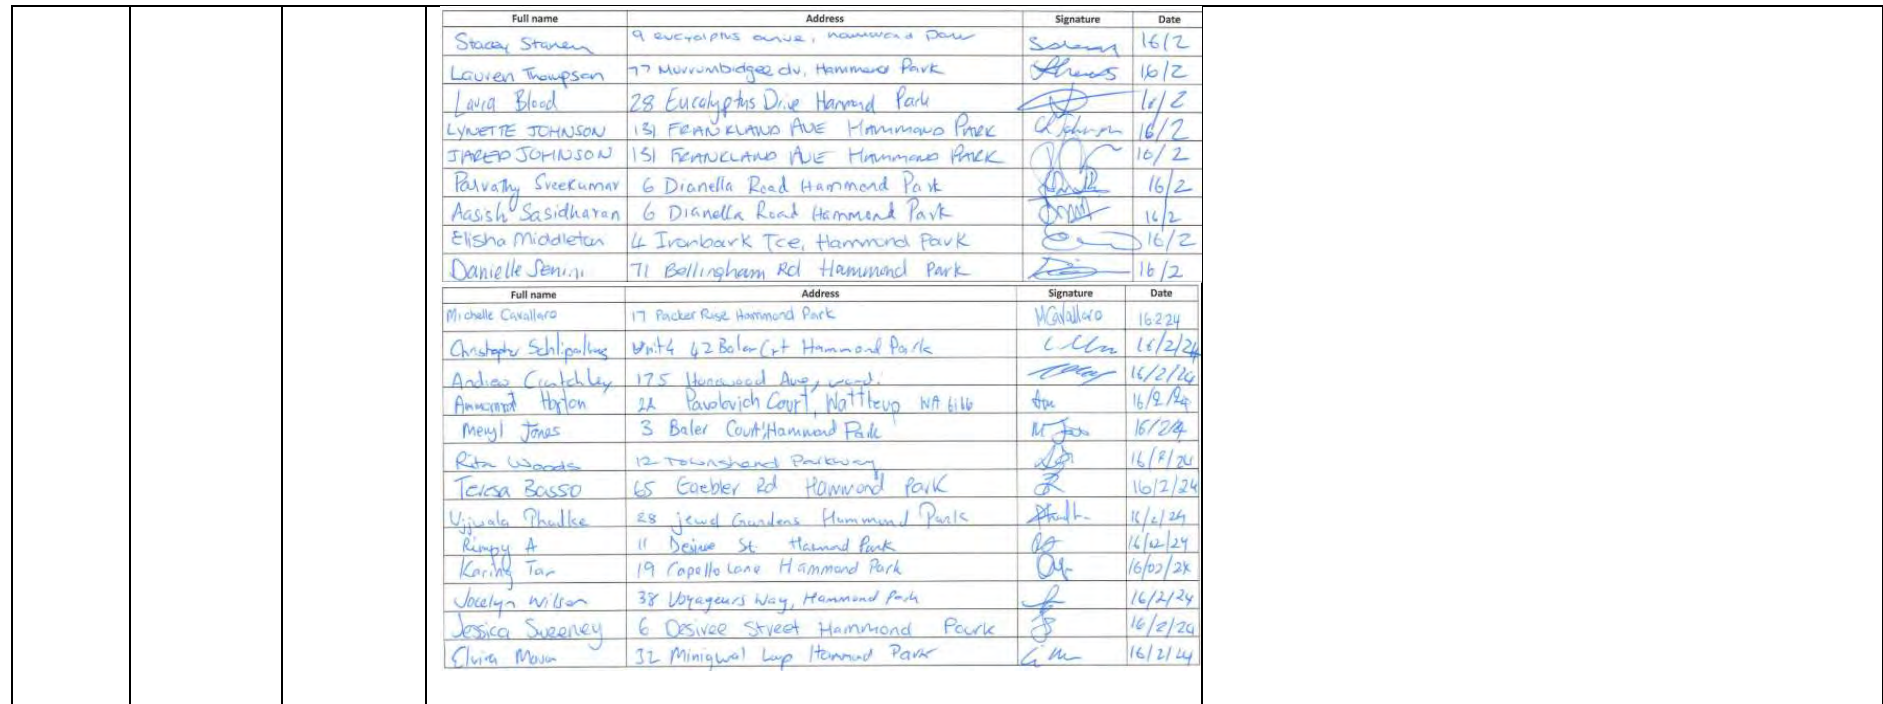 Full name Address Signature Date
Stacey 9 eucalyptus drive, hammond park 16/2
Lauren Thompson 77 Murrumbidgee dv, Hammond Park 16/2
Laura Blood 28 Eucalyptus Drive Hammond Park 16/2
LYNETTE JOHNSON 131 FRANKLAND AVE HAMMOND PARK 16/2
JARED JOHNSON 131 FRANKLAND AVE HAMMOND PARK 16/2
Parvathy Sreekumar 6 Dianella Road Hammond Park 16/2
Aasish Sasidharan 6 Dianella Road Hammond Park 16/2
Elisha Middleton 4 Ironbark Tce, Hammond Park 16/2
Danielle Senini 71 Bellingham Rd Hammond Park 16/2
Full name Address Signature Date
Michelle Cavallaro 17 Packer Rise Hammond Park MCavallaro 16224
Christopher Unit 4 42 Baler Crt Hammond Park 16/2/24
Andrew Crutchley 175 Ave, 16/2/24
Horton 2A Court, Wattleup WA 6166 16/2/24
Meryl Jones 3 Baler Court Hammond Park M 16/2/24
Rita Woods 12 Townshend Parkway 16/2/24
Teresa Basso 65 Gaebler Rd Hammond Park 16/2/24
Ujjwala Phadke 28 jewel Gardens Hammond Park 16/2/24
Rimpy A 11 Desiree St Hammond Park 16/02/24
Karing Tan 19 Capello Lane Hammond Park 16/02/24
Jocelyn Wilson 38 Voyageurs Way, Hammond Park 16/2/24
Jessica Sweeney 6 Desiree Street Hammond Park 16/2/24
Elvira 32 Minigwal Loop Hammond Park 16/2/24